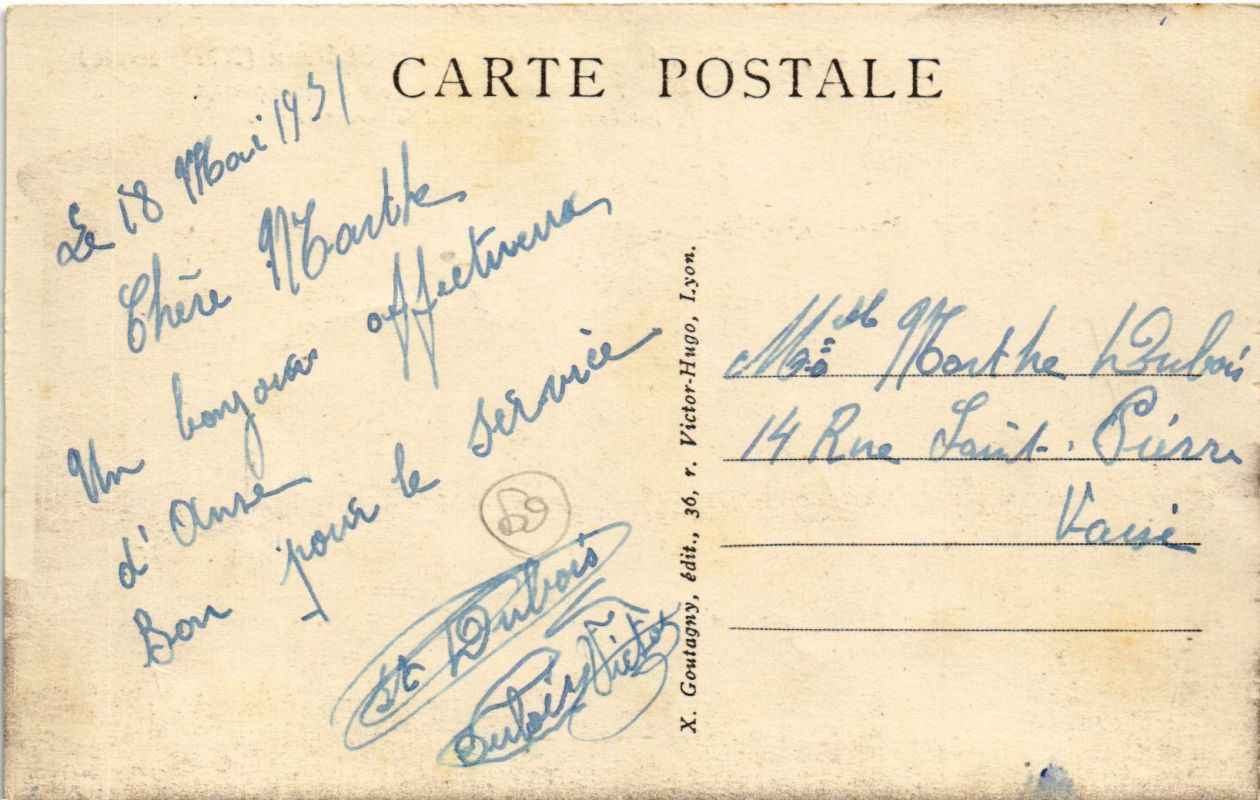 CARTE POSTALE
Le 18 Mai 1931
Chère Marthe
Un bonjour affectueux
d'Anse
Bon pour le service
69
St Dubois
Dubois Victor
X. Goutagny, édit., 36, r. Victor-Hugo, Lyon.
Melle Marthe Dubois
14 Rue Saint-Pierre
Vaise